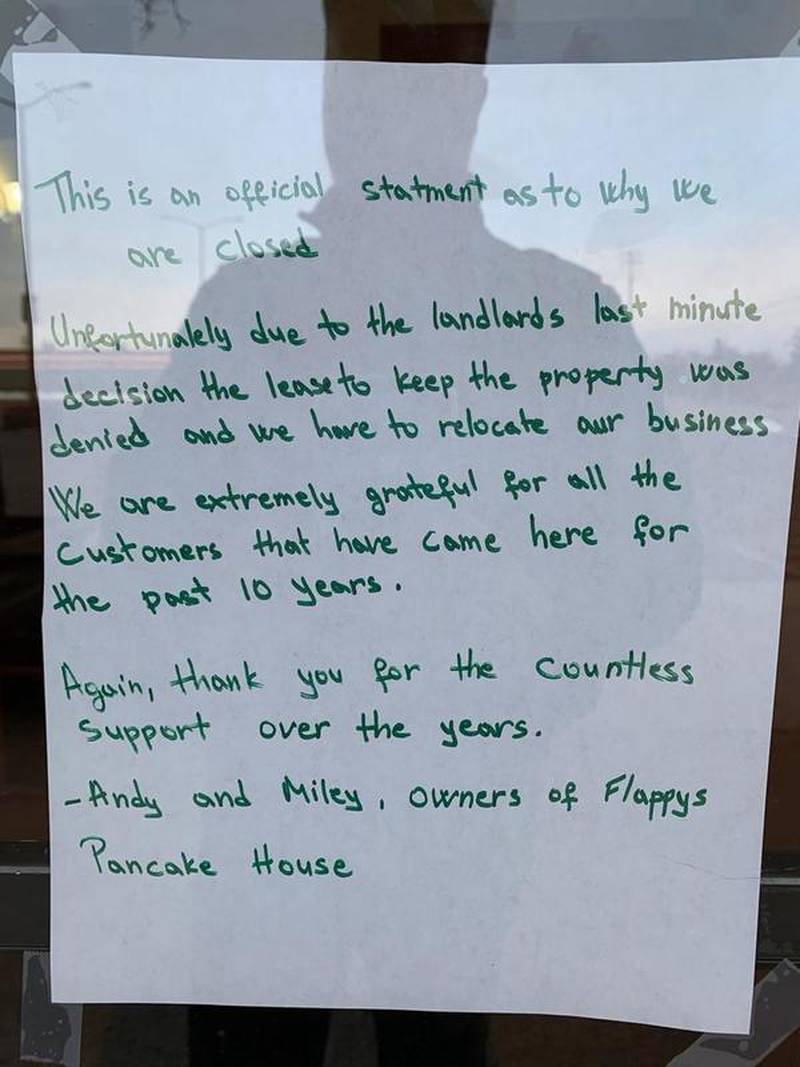 This is an official statment as to why we
are closed
Unfortunately due to the landlards last minute
decision the lease to keep the property was
denied and we have to relocate our business
We are extremely grateful for all the
customers that have came here for
the past 10 years.
Again, thank you for the countless
support over the years.
-Andy and Miley, owners of Flappys
Pancake House